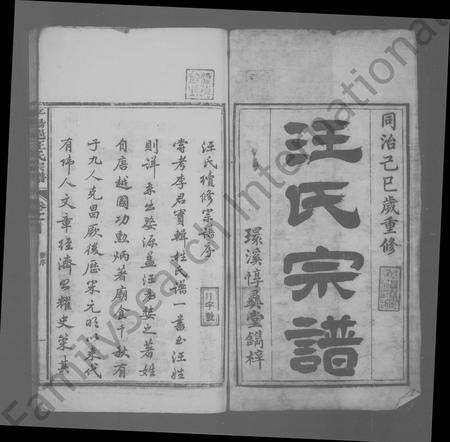 同治己巳歲重修
汪氏宗譜
環溪惇彝堂鐫梓
汪氏續修宗譜序
嘗考李君實輯杜氏譜一書至汪姓
則詳來出婺源蓋汪者婺之著姓
自唐越國功勳炳著廟食千秋有
子九人克昌厥後歷宋元明以來代
有偉人文章經濟照耀史策其
FamilySearch International